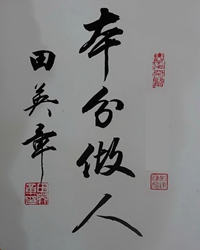 本分做人
田英章